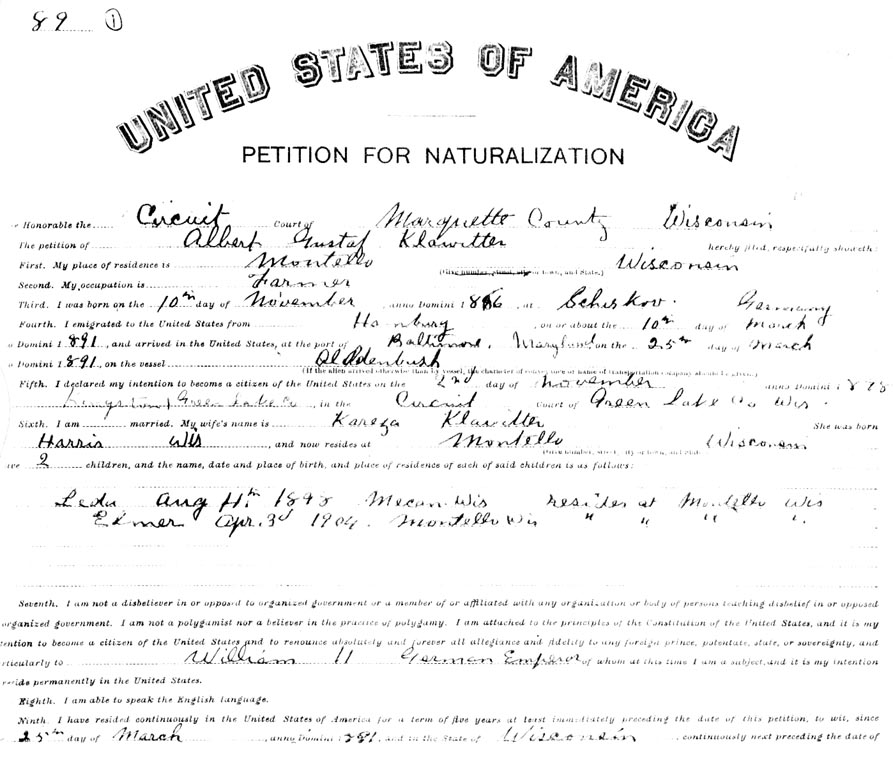 89 1
UNITED STATES OF AMERICA
PETITION FOR NATURALIZATION
Honorable the Circuit Court of Marquette County Wisconsin
The petition of Albert Gustaf Klawitter hereby filed, respectfully showeth:
First. My place of residence is Montello Wisconsin
Second. My occupation is Farmer
Third. I was born on the 10th day of November anno Domini 1866, at Germany
Fourth. I emigrated to the United States from Hamburg, on or about the 10th day of March
o Domini 1891, and arrived in the United States, at the port of Baltimore, Maryland on the 25th day of March
o Domini 1891, on the vessel
(If the alien arrived otherwise than by vessel, the character of conveyance or name of transportation company should be given.)
Fifth. I declared my intention to become a citizen of the United States on the 2nd day of November anno Domini 1898
Kingston Green Lake Co, in the Circuit Court of Green Lake Co Wis
Sixth. I am married. My wife's name is Klawitter She was born
Harris Wis, and now resides at Montello Wisconsin
ave 2 children, and the name, date and place of birth, and place of residence of each of said children is as follows:
Leda Aug 4th 1898 Mecan Wis resides at Montello Wis
Elmer Apr. 3d 1904. Montello Wis " " " "
Seventh. I am not a disbeliever in or opposed to organized government or a member of or affiliated with any organization or body of persons teaching disbelief in or opposed
organized government. I am not a polygamist nor a believer in the practice of polygamy. I am attached to the principles of the Constitution of the United States, and it is my
tention to become a citizen of the United States and to renounce absolutely and forever all allegiance and fidelity to any foreign prince, potentate, state, or sovereignty, and
rticularly to William II German Emperor of whom at this time I am a subject, and it is my intention
reside permanently in the United States.
Eighth. I am able to speak the English language.
Ninth. I have resided continuously in the United States of America for a term of five years at least immediately preceding the date of this petition, to wit, since
25th day of March, anno Domini 1891, and in the State of Wisconsin, continuously next preceding the date of